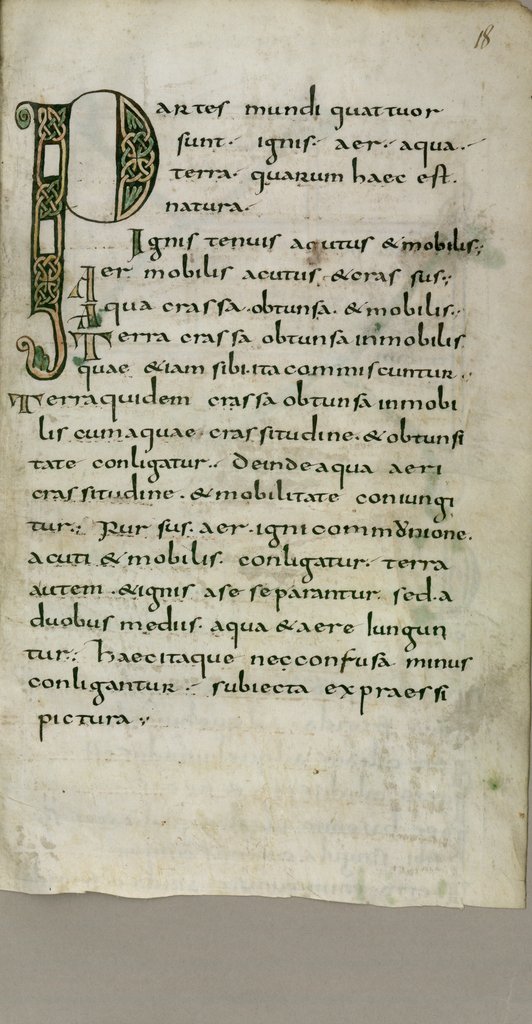 18
Partes mundi quattuor
sunt· ignis· aer· aqua·
terra· quarum haec est·
natura·
Ignis tenuis acutus & mobilis;
Aer mobilis acutus, & cras sus;
Aqua crassa·obtunsa· & mobilis·
Terra crassa obtunsa inmobilis
quae &iam sibi·ita commiscuntur·
Terra quidem crassa obtunsa inmobi
lis cum aquae·crassitudine·& obtunsi
tate conligatur· Deinde aqua aeri
crassitudine·& mobilitate coniungi
tur; Rursus·aer·igni commonione·
acuti & mobilis· conligatur· terra
autem·& ignis a se separantur· sed·a
duobus mediis· aqua & aere iungun
tur; haec itaque nec confusa minus
conligantur· subiecta expraessi
pictura;